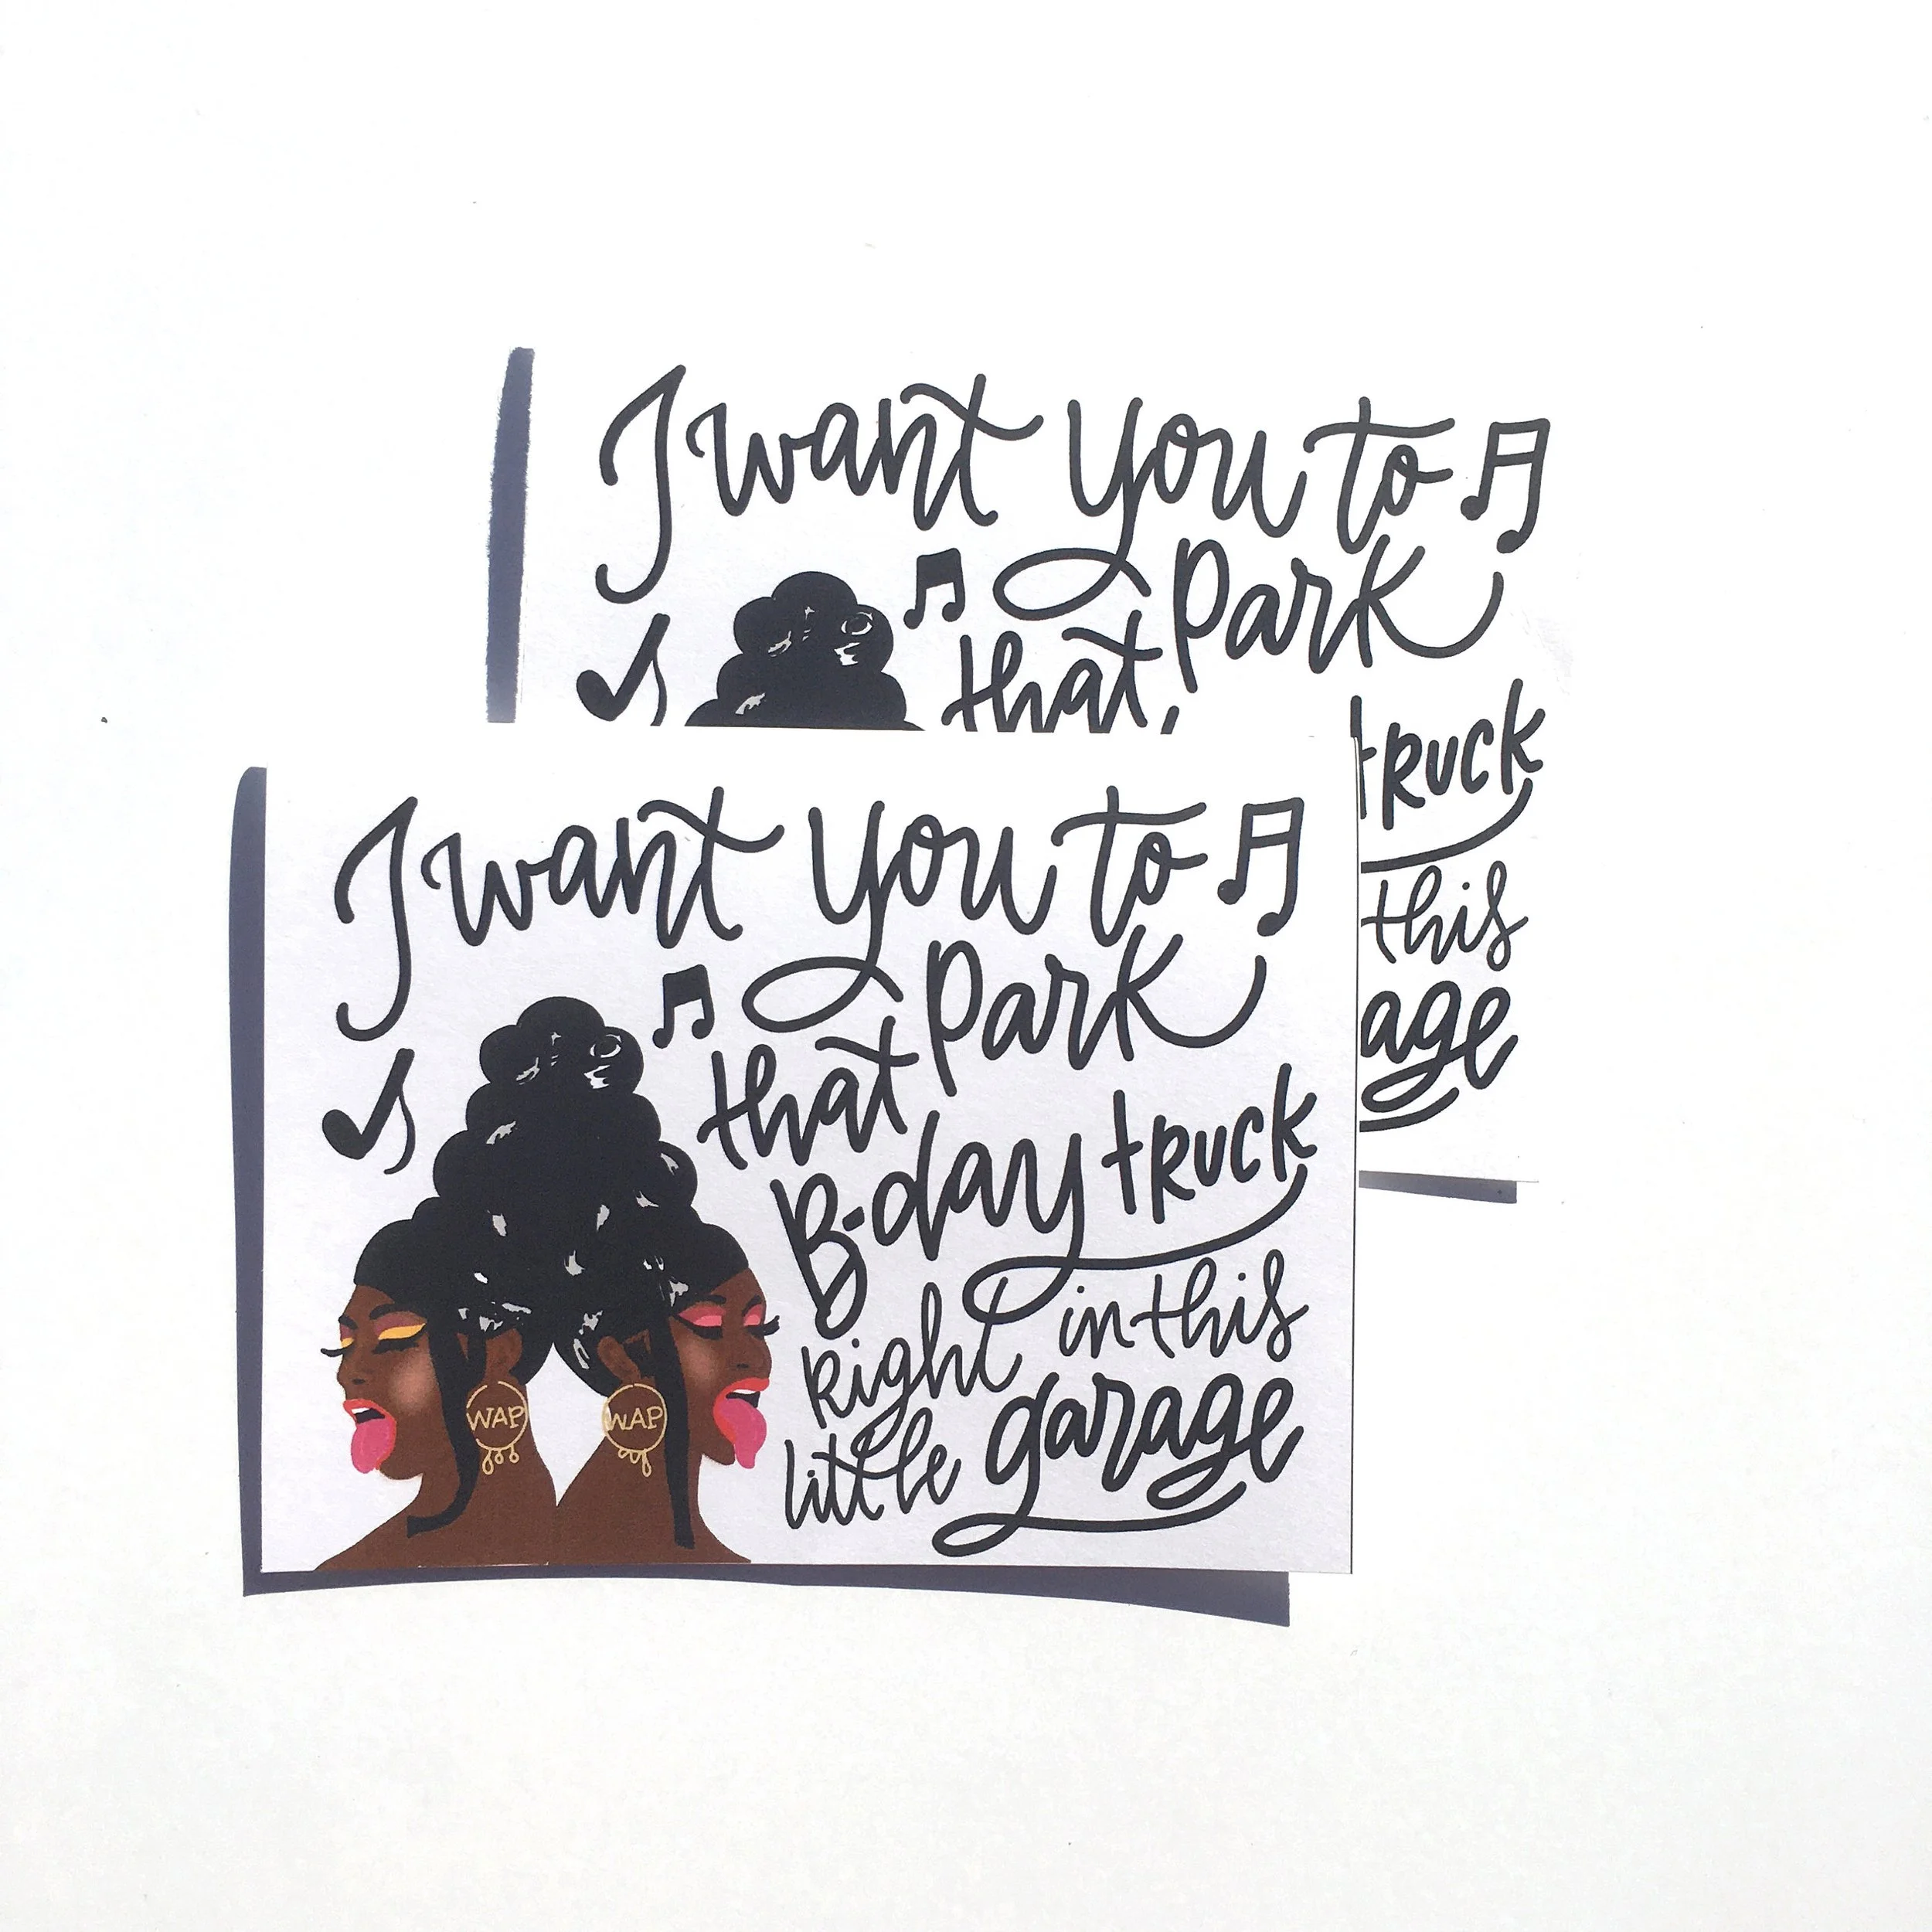 I want you to
park
that
truck
this
age
I want you to
park
that
B-day truck
Right in this
little garage
WAP WAP